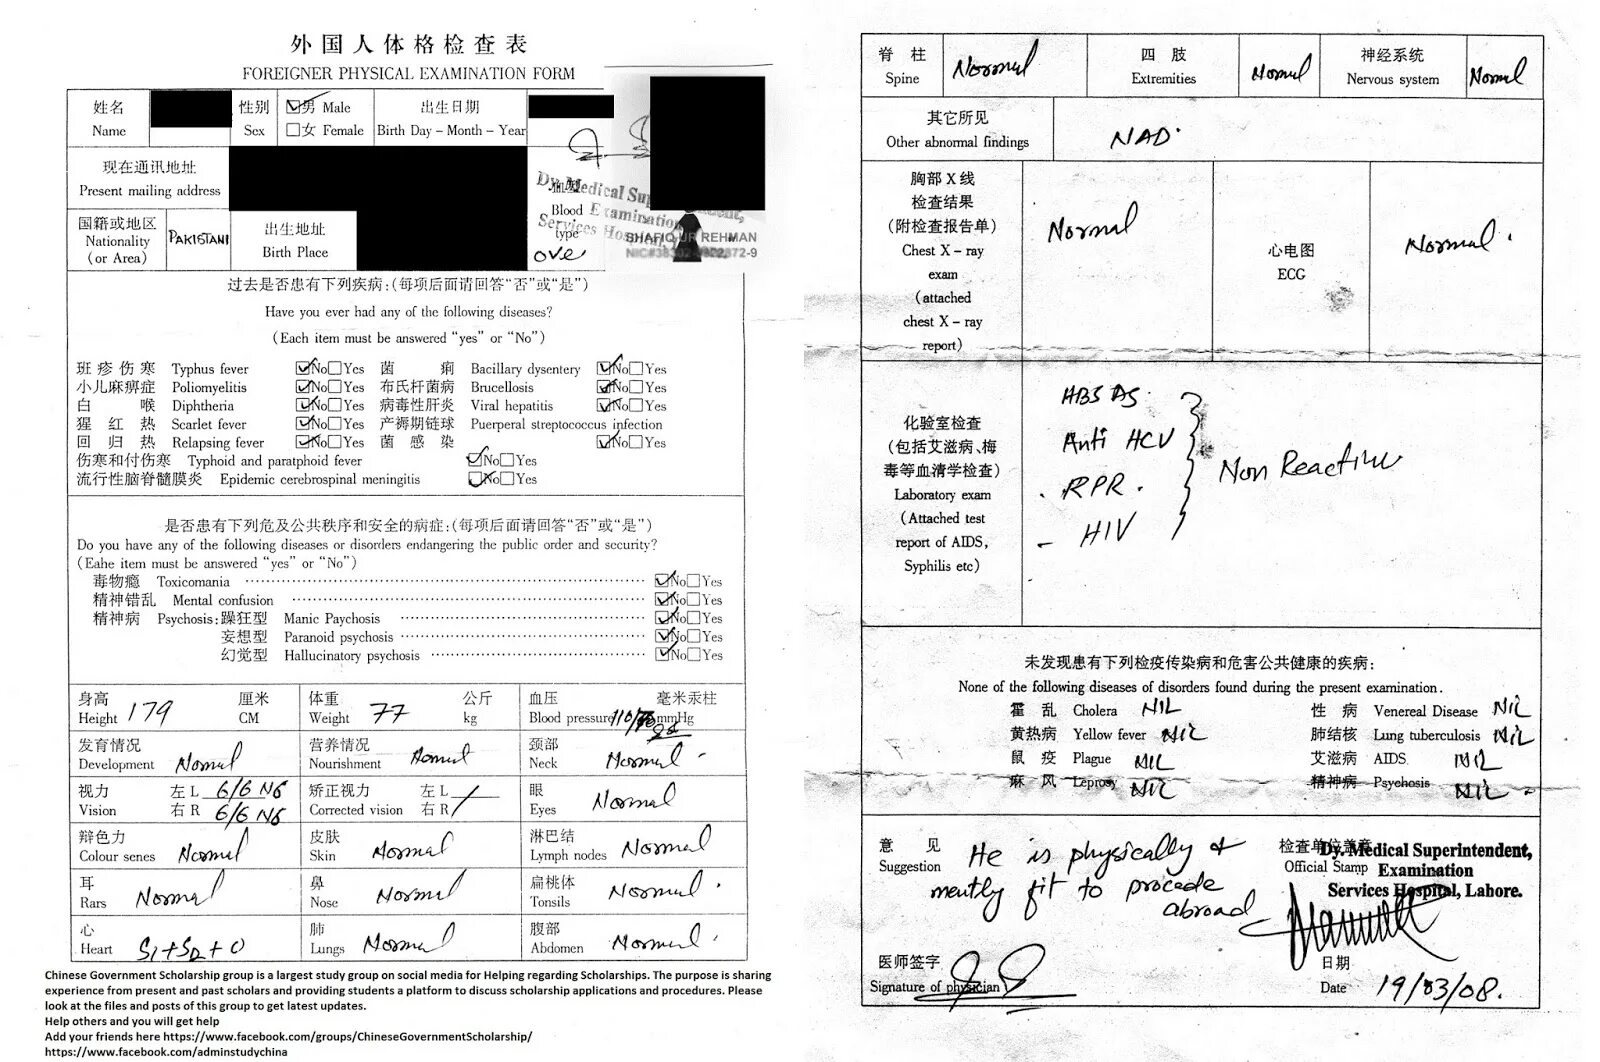 外国人体格检查表
FOREIGNER PHYSICAL EXAMINATION FORM
姓名 Name
性别 Sex
男 Male
女 Female
出生日期 Birth Day – Month – Year
现在通讯地址
Present mailing address
Blood type
ove
Dy. Medical Superintendent,
Examination
Services Hospital,
国籍或地区 Nationality (or Area)
PAKISTANI
出生地址 Birth Place
过去是否患有下列疾病:(每项后面请回答“否”或“是”)
Have you ever had any of the following diseases?
(Each item must be answered “yes” or “No”)
班疹伤寒 Typhus fever No Yes 菌痢 Bacillary dysentery No Yes
小儿麻痹症 Poliomyelitis No Yes 布氏杆菌病 Brucellosis No Yes
白喉 Diphtheria No Yes 病毒性肝炎 Viral hepatitis No Yes
猩红热 Scarlet fever No Yes 产褥期链球 Puerperal streptococcus infection
回归热 Relapsing fever No Yes 菌感染 No Yes
伤寒和付伤寒 Typhoid and paratphoid fever No Yes
流行性脑脊髓膜炎 Epidemic cerebrospinal meningitis No Yes
是否患有下列危及公共秩序和安全的病症:(每项后面请回答“否”或“是”)
Do you have any of the following diseases or disorders endangering the public order and security?
(Eahe item must be answered “yes” or “No”)
毒物瘾 Toxicomania No Yes
精神错乱 Mental confusion No Yes
精神病 Psychosis: 躁狂型 Manic Paychosis No Yes
妄想型 Paranoid psychosis No Yes
幻觉型 Hallucinatory psychosis No Yes
身高 Height 179 厘米 CM 体重 Weight 77 公斤 kg 血压 Blood pressure 110/ 毫米汞柱 mmHg
发育情况 Development Normal 营养情况 Nourishment Normal 颈部 Neck Normal
视力 Vision 左 L 6/6 N6 右 R 6/6 N6 矫正视力 Corrected vision 左 L 右 R 眼 Eyes Normal
辩色力 Colour senes Normal 皮肤 Skin Normal 淋巴结 Lymph nodes Normal
耳 Rars Normal 鼻 Nose Normal 扁桃体 Tonsils Normal
心 Heart S1+S2+0 肺 Lungs Normal 腹部 Abdomen Normal
Chinese Government Scholarship group is a largest study group on social media for Helping regarding Scholarships. The purpose is sharing
experience from present and past scholars and providing students a platform to discuss scholarship applications and procedures. Please
look at the files and posts of this group to get latest updates.
Help others and you will get help
Add your friends here https://www.facebook.com/groups/ChineseGovernmentScholarship/
https://www.facebook.com/adminstudychina
脊柱 Spine Normal 四肢 Extremities Normal 神经系统 Nervous system Normal
其它所见
Other abnormal findings
NAD.
胸部 X 线
检查结果
(附检查报告单)
Chest X – ray
exam
(attached
chest X – ray
report)
Normal
心电图
ECG
Normal.
化验室检查
(包括艾滋病、梅
毒等血清学检查)
Laboratory exam
(Attached test
report of AIDS,
Syphilis etc)
HBS AS.
Anti HCV
RPR.
HIV
Non Reactive
未发现患有下列检疫传染病和危害公共健康的疾病:
None of the following diseases of disorders found during the present examination.
霍乱 Cholera NIL 性病 Venereal Disease NIL
黄热病 Yellow fever NIL 肺结核 Lung tuberculosis NIL
鼠疫 Plague NIL 艾滋病 AIDS. NIL
麻风 Leprosy NIL 精神病 Psychosis NIL
意见
Suggestion
He is physically &
mently fit to procede
abroad
检查单位盖章
Official Stamp
Dy. Medical Superintendent,
Examination
Services Hospital, Lahore.
医师签字
Signature of physician
日期
Date 19/03/08.